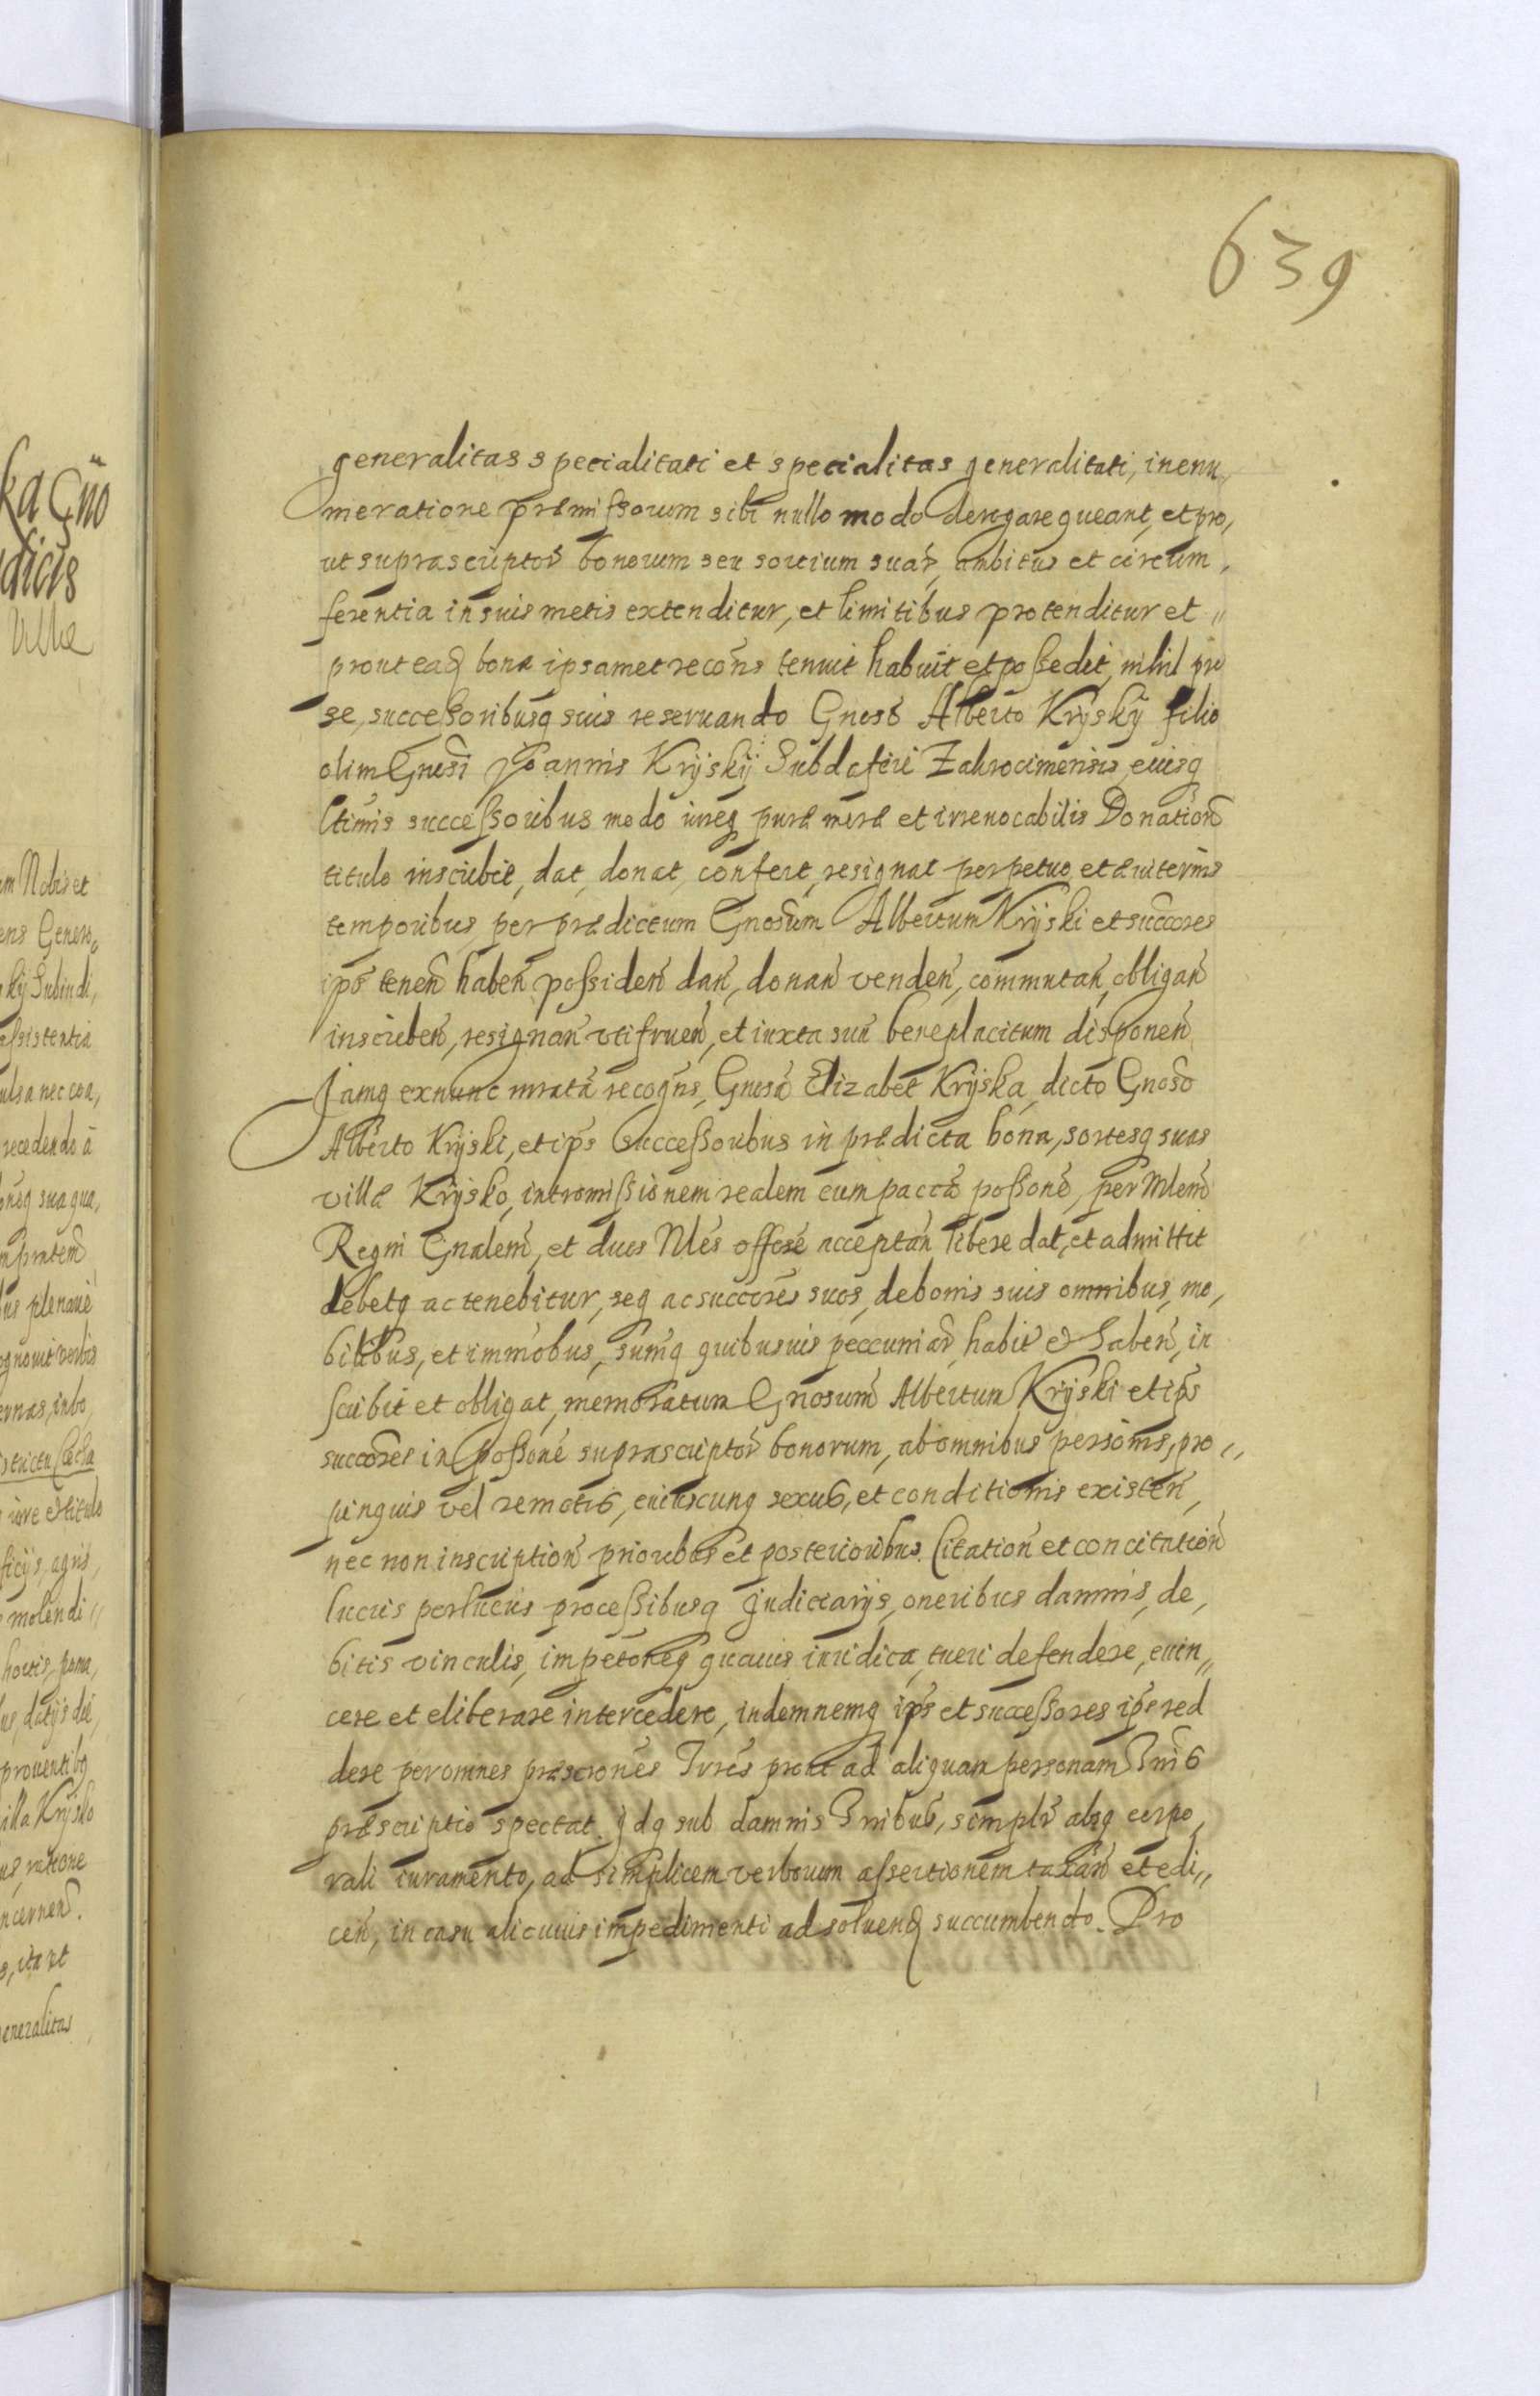 639
generalitas specialitati et specialitas generalitati, in enu,
meratione præmissorum sibi nullo modo derogare queant, et pro,
ut suprascriptor̃ bonorum seu sortium suar̃, ambitus et circum,
ferentia in suis metis extenditur, et limitibus protenditur et „
prout eaq̃ bona ipsamet recõns tenuit habuit et possedit, nihil pro
se, successoribusq suis reseruando Gnoso Alberto Kryský filio
olim Gnosi Joannis Kryskÿ Subdaferi Zakrocimensis eiusq
Ltimis successoribus modo iureq puræ meræ et irreuocabilis Donation̄
titulo inscribit, dat, donat, confert, resignat perpetuo et æuiternis
temporibus per prædictum Gnosum Albertum Krÿski et succores
ips̄ tenen̄ haben̄ possiden̄ dan̄, donan̄ venden̄, commutan̄, obligan̄
inscriben̄, resignan̄ vtifruen̄, et iuxta suū beneplacitum disponen̄
Jamq exnunc recogn̄s, Gnosa Elizabet Kryska, dicto Gnoso
Alberto Krÿski, et ips̄ successoribus in prædicta bona, sortesq suas
villæ Krÿsko, intromissionem realem cum paccta possone, per Mlem
Regni Gnalem, et duos Nles offere acceptan̄ libere dat, et admittit
debetq ac tenebitur, seq ac succores suos, de bonis suis omnibus, mo,
bilibus, et immobus, sumq quibusuis peccuniar̃, habit̃ et haben̄, in
scribit et obligat, memoratum Gnosum Albertum Krÿski et ips̄
succores in possone suprascriptor̃ bonorum, ab omnibus personis, pro „
pinquis vel remotis, cuiuscunq sexus, et conditionis existen̄,
nec non inscription̄ prioribus et posterioribus Citation̄ et concitation̄
lucris perlucris processibusq Judiciarÿs, oneribus damnis, de,
bitis vinculis, impetoneq quauis iuridica, tueri defendere, euin„
cere et eliberare intercedere, indemnemq ips̄ et successores ips̄ red
dere per omnes præscrones Jures prout ad aliquam personam
præscriptio spectat. Jdq sub damnis simplr̄ absq corpo,
rali iuramento, ad simplicem verborum assertionem taxan̄ et edi„
cen̄, in casu alicuius impedimenti ad soluend̄ succumbendo. Pro